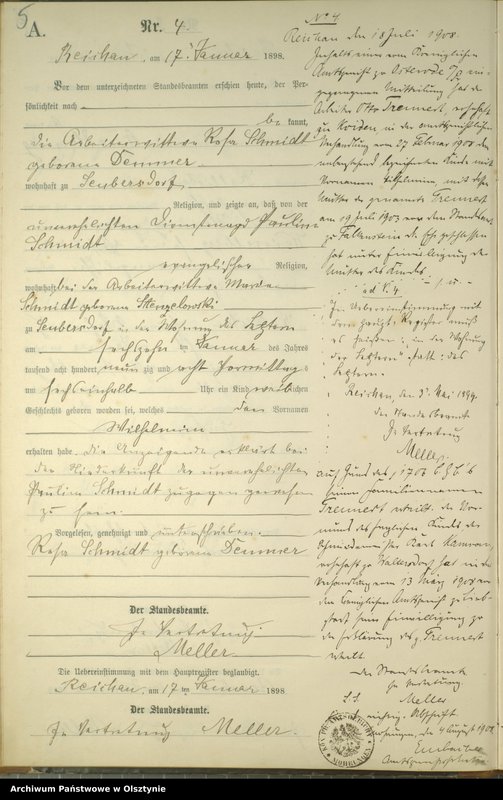 5
A.
Nr. 4.
Reichau, am 17ten Januar 1898.
Vor dem unterzeichneten Standesbeamten erschien heute, der Per-
sönlichkeit nach
be kannt,
die Arbeiterwittwe Rosa Schmidt
geborene Demmer
wohnhaft zu Seubersdorf
Religion, und zeigte an, daß von der
unverehelichten Dienstmagd Pauline
Schmidt
evangelischer Religion,
wohnhaft bei der Arbeiterwittwe
Schmidt geborene
zu Seubersdorf in der Wohnung des Letztern
am sechszehnten Januar des Jahres
tausend acht hundert neunzig und acht Vormittags
um sechseinhalb Uhr ein Kind weiblichen
Geschlechts geboren worden sei, welches den Vornamen
Wilhelmine
erhalten habe. Die Anzeigende erklärt bei
der Niederkunft der unverehelichten
Pauline Schmidt zugegen gewesen
zu sein.
Vorgelesen, genehmigt und unterschrieben.
Rosa Schmidt geborene Demmer
Der Standesbeamte.
In Vertretung
Meller
Die Uebereinstimmung mit dem Hauptregister beglaubigt.
Reichau, am 17ten Januar 1898
Der Standesbeamte.
In Vertretung Meller.
No 4
Reichau den 18 Juli 1908.
Inhalts einer vom Königlichen
Amtsgericht zu Osterode
Mitteilung hat der
Arbeiter Otto Trennert, wohnhaft
zu in der amtsgerichtlichen
Verhandlung vom 27 Februar 1908 das
nebenstehend bezeichnete Kind mit
Vornamen Wilhelmine, mit dessen
Mutter der genannte Trennert
am 19 Juli 1903 vor dem Standesamt
zu Falkenstein die Ehe geschlossen
hat unter Einwilligung der
Mutter des Kindes
ad N. 4.
In Uebereinstimmung mit
dem Register muß
es heißen: in der Wohnung
der Letztern statt: des
Letztern.
Reichau, den 3. Mai 1899.
Der Standesbeamte
In Vertretung
Meller.
auf Grund des § 1706 B. G. B.'s
seinen Familiennamen
Trennert erteilt. Der Vor-
mund des Kindes der
Karl
wohnhaft zu hat in der
Verhandlung vom 13 März 1908 vor
dem Königlichen Amtsgericht zu Lieb-
stadt seine Einwilligung zu
der Erklärung des Trennert
erteilt.
Der Standesbeamte
In Vertretung
L. S. Meller
richtige Abschrift
Mohrungen, den 4 August 1908
Archiwum Państwowe w Olsztynie